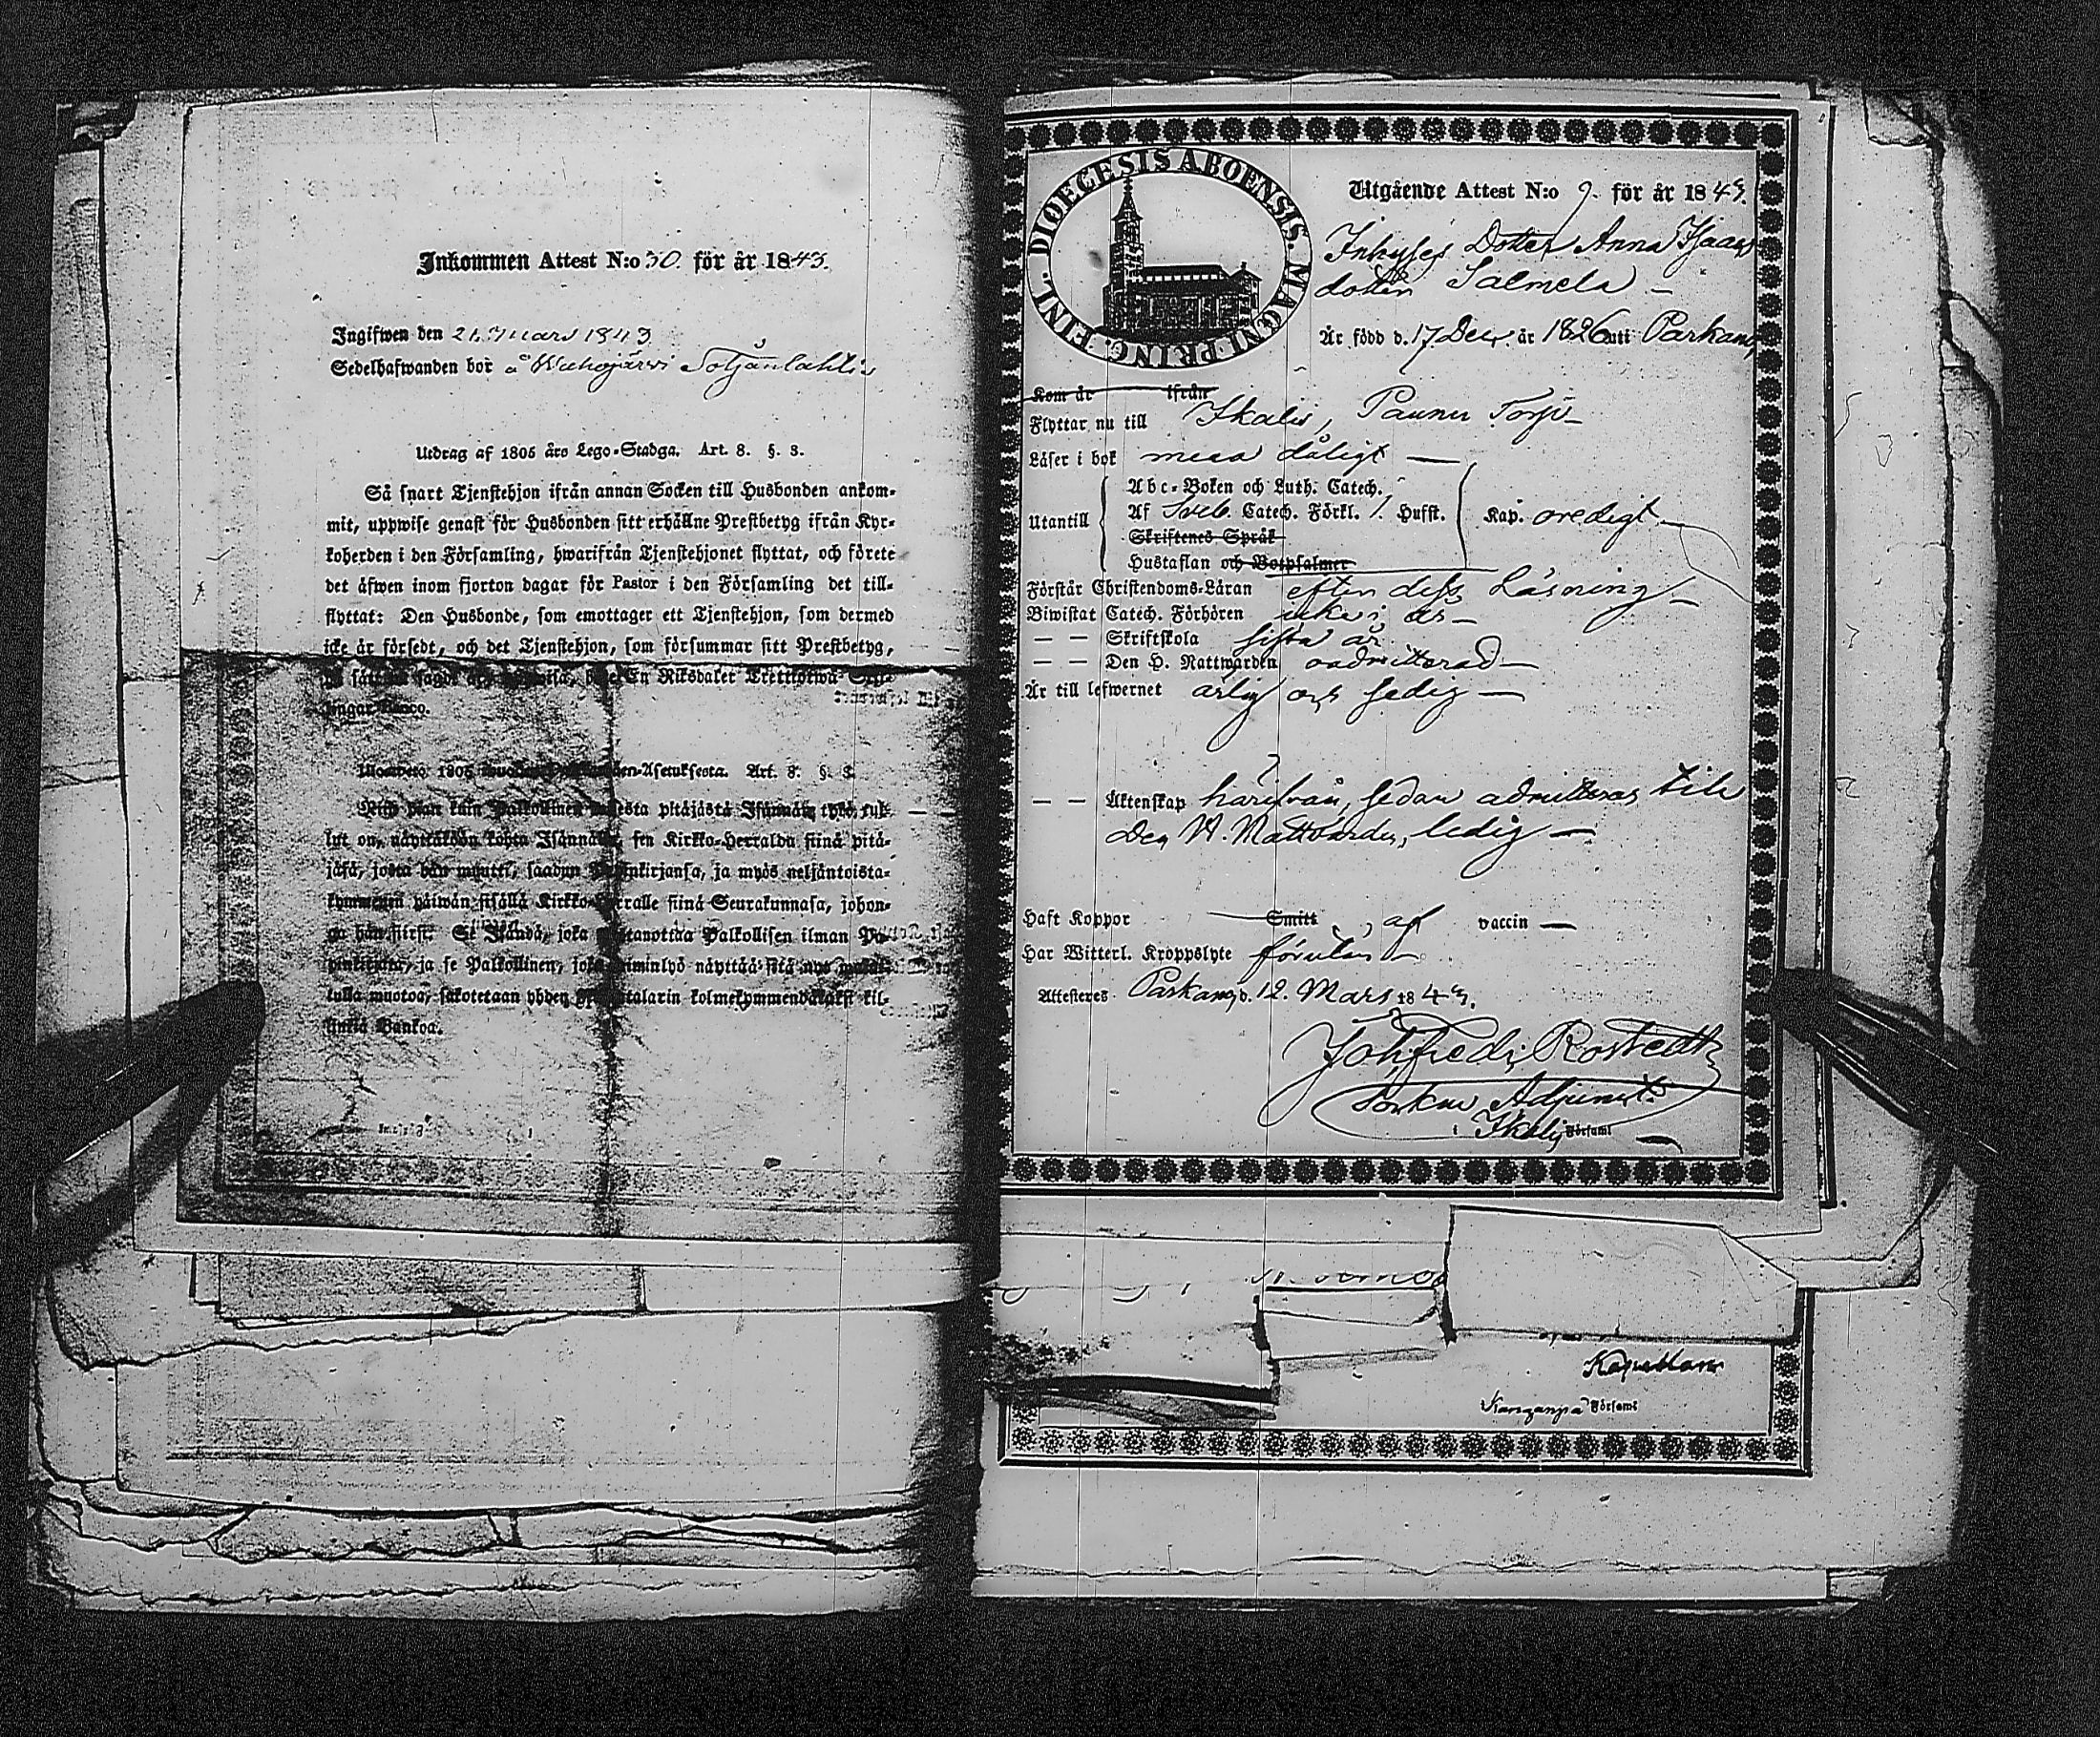 Inkommen Attest N:o 30. för år 1843.
Ingifwen den 21. Mars 1843
Sedelhafwanden bor å
Utdrag af 1805 års Lego-Stadga. Art. 8. §. 3.
Så snart Tjenstehjon ifrån annan Socken till Husbonden ankom-
mit, uppwise genast för Husbonden sitt erhållne Prestbetyg ifrån Kyr-
koherden i den Församling, hwarifrån Tjenstehjonet flyttat, och förete
det äfwen inom fjorton dagar för Pastor i den Församling det till-
flyttat: Den Husbonde, som emottager ett Tjenstehjon, som dermed
icke är försedt, och det Tjenstehjon, som försummar sitt Prestbetyg,
En Riksdaler Trettiotwå
lingar Banco.
1805 Asetuksesta. Art. 8. §. 3.
Niin pian kuin Palkollinen pitäjästä Isännän tykö tul-
lut on, näyttäköön kohta Isännälle, sen Kirkko-Herralda siinä pitä-
jäsä, josta hän muutti, saadun ja myös neljäntoista-
kymmenen päiwän sisällä Kirkko-Herralle siinä Seurakunnasa, johon-
ga hän siirsi. Se Isändä, joka wastanottaa Palkollisen ilman
ja se Palkollinen, joka laiminlyö näyttää sitä
tulla muotoa, sakotetaan yhden kolmekymmendäkaksi kil-
lingiä Bankoa.
DIOECESIS ABOENSIS. MAGNI PRINC. FINL.
Utgående Attest N:o 9. för år 1843.
Inhyses Dotter Anna Isaacs
dotter Salmela –
Är född d. 17 Dec. år 1826 uti Parkano
Kom år ifrån
Flyttar nu till Ikalis,
Läser i bok dåligt —
Utantill
Abc-Boken och Luth. Catech.
Af Sveb. Catech. Förkl. 1. Hufst. Kap. oredigt —
Skriftenes Språk
Hustaflan och Botpsalmer
Förstår Christendoms-Läran efter dess Läsning –
Biwistat Catech. Förhören icke i år –
— — Skriftskola sista år
— — Den H. Nattwarden oadmitterad —
Är till lefwernet ärlig och sedig —
— — Äktenskap härifrån, sedan admitteras till
Den H. Nattvarden, ledig —
Haft Koppor Smitt, af vaccin —
Har Witterl. Kroppslyte förutan –
Attesteres Parkano d. 12. Mars 1843.
Rostedt
Adjunct
i Ikalis Församl
Kapellan
Församl